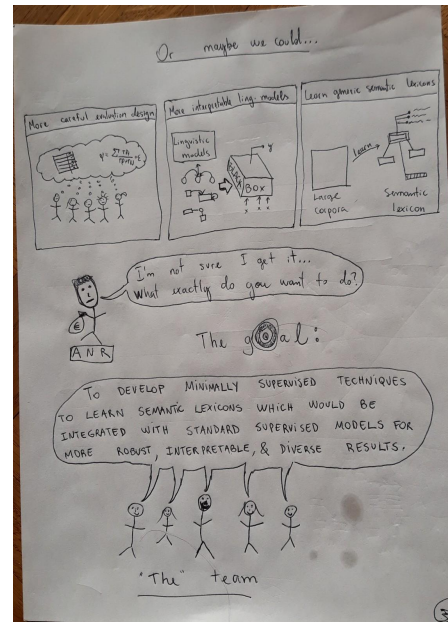 Or maybe we could...
More careful evaluation design
More interpretable ling. models
Learn generic semantic lexicons
Linguistic
models
BLACK
Box
y
x x x
Learn
Large
corpora
Semantic
lexicon
I'm not sure I get it...
What exactly do you want to do?
€
ANR
The goal:
To DEVELOP MINIMALLY SUPERVISED TECHNIQUES
TO LEARN SEMANTIC LEXICONS WHICH WOULD BE
INTEGRATED WITH STANDARD SUPERVISED MODELS FOR
MORE ROBUST, INTERPRETABLE, & DIVERSE RESULTS.
"The" team